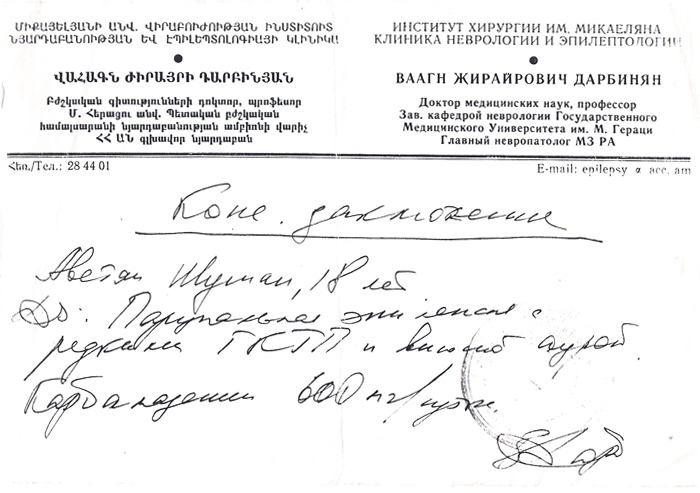 ՄԻՔԱՅԵԼՅԱՆԻ ԱՆՎ. ՎԻՐԱԲՈՒԺՈՒԹՅԱՆ ԻՆՍՏԻՏՈՒՏ
ՆՅԱՐԴԱԲԱՆՈՒԹՅԱՆ ԵՎ ԷՊԻԼԵՊՏՈԼՈԳԻԱՅԻ ԿԼԻՆԻԿԱ
ՎԱՀԱԳՆ ԺԻՐԱՅՐԻ ԴԱՐԲԻՆՅԱՆ
Բժշկական գիտությունների դոկտոր, պրոֆեսոր
Մ. Հերացու անվ. Պետական բժշկական
համալսարանի նյարդաբանության ամբիոնի վարիչ
ՀՀ ԱՆ գլխավոր նյարդաբան
ИНСТИТУТ ХИРУРГИИ ИМ. МИКАЕЛЯНА
КЛИНИКА НЕВРОЛОГИИ И ЭПИЛЕПТОЛОГИИ
ВААГН ЖИРАЙРОВИЧ ДАРБИНЯН
Доктор медицинских наук, профессор
Зав. кафедрой неврологии Государственного
Медицинского Университета им. М. Гераци
Главный невропатолог МЗ РА
Հեռ./Тел.: 28 44 01
E-mail: epilepsy @ acc. am
Конс. заключение
Аветян 18 лет
Ds: Парциальная эпилепсия с
редкими ГКТП и аурой.
Карбамазепин 600 мг/сутки.